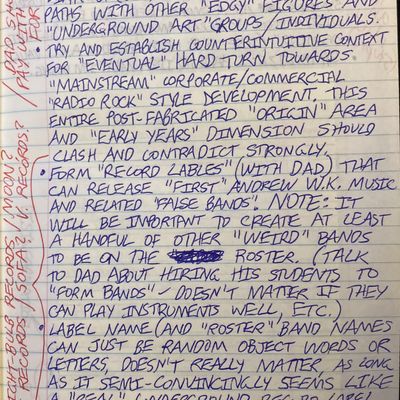 PATHS WITH OTHER "EDGY" FIGURES AND
"UNDERGROUND ART" GROUPS/INDIVIDUALS.
• TRY AND ESTABLISH COUNTERINTUITIVE CONTEXT
FOR "EVENTUAL" HARD TURN TOWARDS
"MAINSTREAM" CORPORATE/COMMERCIAL
"RADIO ROCK" STYLE DEVELOPMENT. THIS
ENTIRE POST-FABRICATED "ORIGIN" AREA
AND "EARLY YEARS" DIMENSION SHOULD
CLASH AND CONTRADICT STRONGLY.
• FORM "RECORD LABLES" (WITH DAD) THAT
CAN RELEASE "FIRST" ANDREW W.K. MUSIC
AND RELATED "FALSE BANDS". NOTE: IT
WILL BE IMPORTANT TO CREATE AT LEAST
A HANDFUL OF OTHER "WEIRD" BANDS
TO BE ON THE ROSTER. (TALK
TO DAD ABOUT HIRING HIS STUDENTS TO
"FORM BANDS" - DOESN'T MATTER IF THEY
CAN PLAY INSTRUMENTS WELL, ETC.)
• LABEL NAME (AND "ROSTER" BAND NAMES
CAN JUST BE RANDOM OBJECT WORDS OR
LETTERS, DOESN'T REALLY MATTER, AS LONG
AS IT SEMI-CONVINCINGLY SEEMS LIKE
A "REAL" UNDERGROUND RECORD LABEL
BULB RECORDS / MOON?
RECORDS / SOFA? V. RECORDS?
/ DAD
PAY WITH
FOR